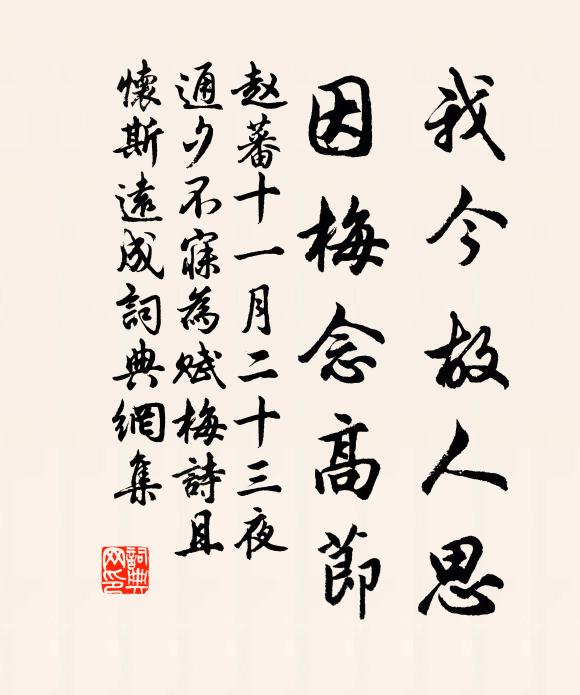 我今故人思
因梅念高節
赵蕃十一月二十三夜
通夕不寐為赋梅詩且
懷斯遠成詞典網集
詞典网印